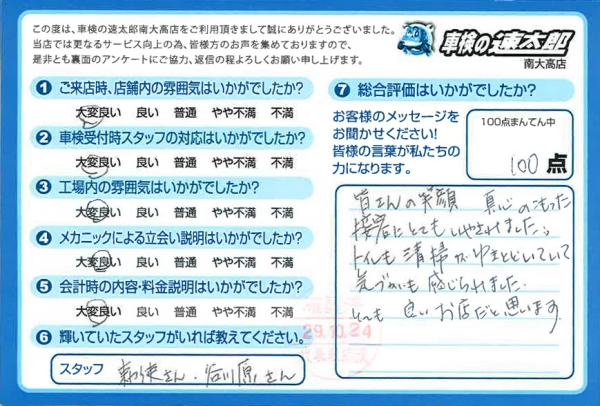 この度は、車検の速太郎南大高店をご利用頂きまして誠にありがとうございました。
当店では更なるサービス向上の為、皆様方のお声を集めておりますので、
是非とも裏面のアンケートにご協力、返信の程よろしくお願い申し上げます。
車検の速太郎
南大高店
1 ご来店時、店舗内の雰囲気はいかがでしたか?
大変良い 良い 普通 やや不満 不満
2 車検受付時スタッフの対応はいかがでしたか?
大変良い 良い 普通 やや不満 不満
3 工場内の雰囲気はいかがでしたか?
大変良い 良い 普通 やや不満 不満
4 メカニックによる立会い説明はいかがでしたか?
大変良い 良い 普通 やや不満 不満
5 会計時の内容・料金説明はいかがでしたか?
大変良い 良い 普通 やや不満 不満
6 輝いていたスタッフがいれば教えてください。
スタッフ さん、谷川原さん
7 総合評価はいかがでしたか?
お客様のメッセージを
お聞かせください!
皆様の言葉が私たちの
力になります。
100点まんてん中
100 点
皆さんの笑顔 真心のこもった
接客にとてもいやされました。
トイレも清掃がゆきとどいていて
気づかいも感じられました。
とても良いお店だと思います。
29.10.24